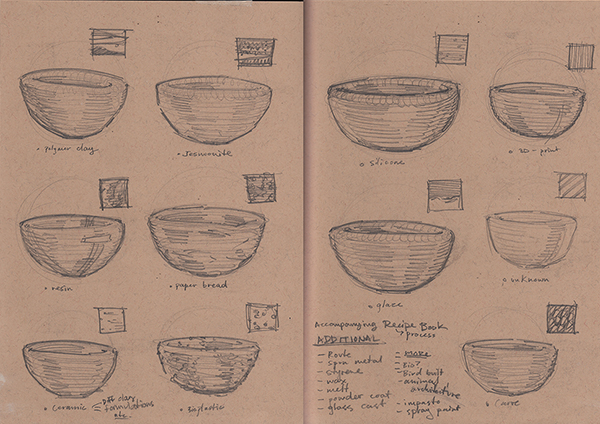 • polymer clay
• Jesmonite
• resin
• paper bread
• Ceramic
Diff clay
formulations
etc.
• Bioplastic
• silicone
• 3D-print
• glaze
• unknown
Accompanying Recipe Book
process
ADDITIONAL
- Route
- spun metal
- styrene
- wax
- melt
- powder coat
- glass cast
- Bio?
- Bird built
- animal
architecture
- impasto
- spray paint